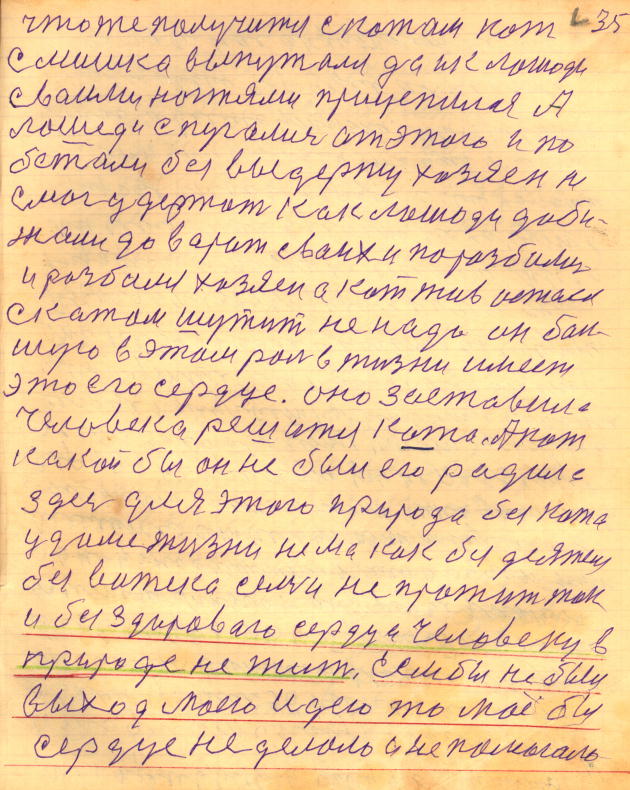 что же получится с котам кот 35
с мишка выпутали да и к лошоди
сваими ногтями прицепился А
лошеди спугались от этого и по
бежали без выдержу хозяен н
смог удержат как лошоди доби-
жали до варот сваих и поразбили
и розбили хозяен а кот жив остася
скатом шутит не надо он бол-
шую в этом рол в жизни имеет
это его сердце. оно заставила
Человека решится кота. А кот
какой бы он не был его радила
здес для этого природа без кота
у доме жизни нема как бы деятел
без ватека семи не прожит так
и без здороваго сердца Человеку в
природе не жит. Если бы не был
выход моею идею то моё бы
сердце не делало и не помогало